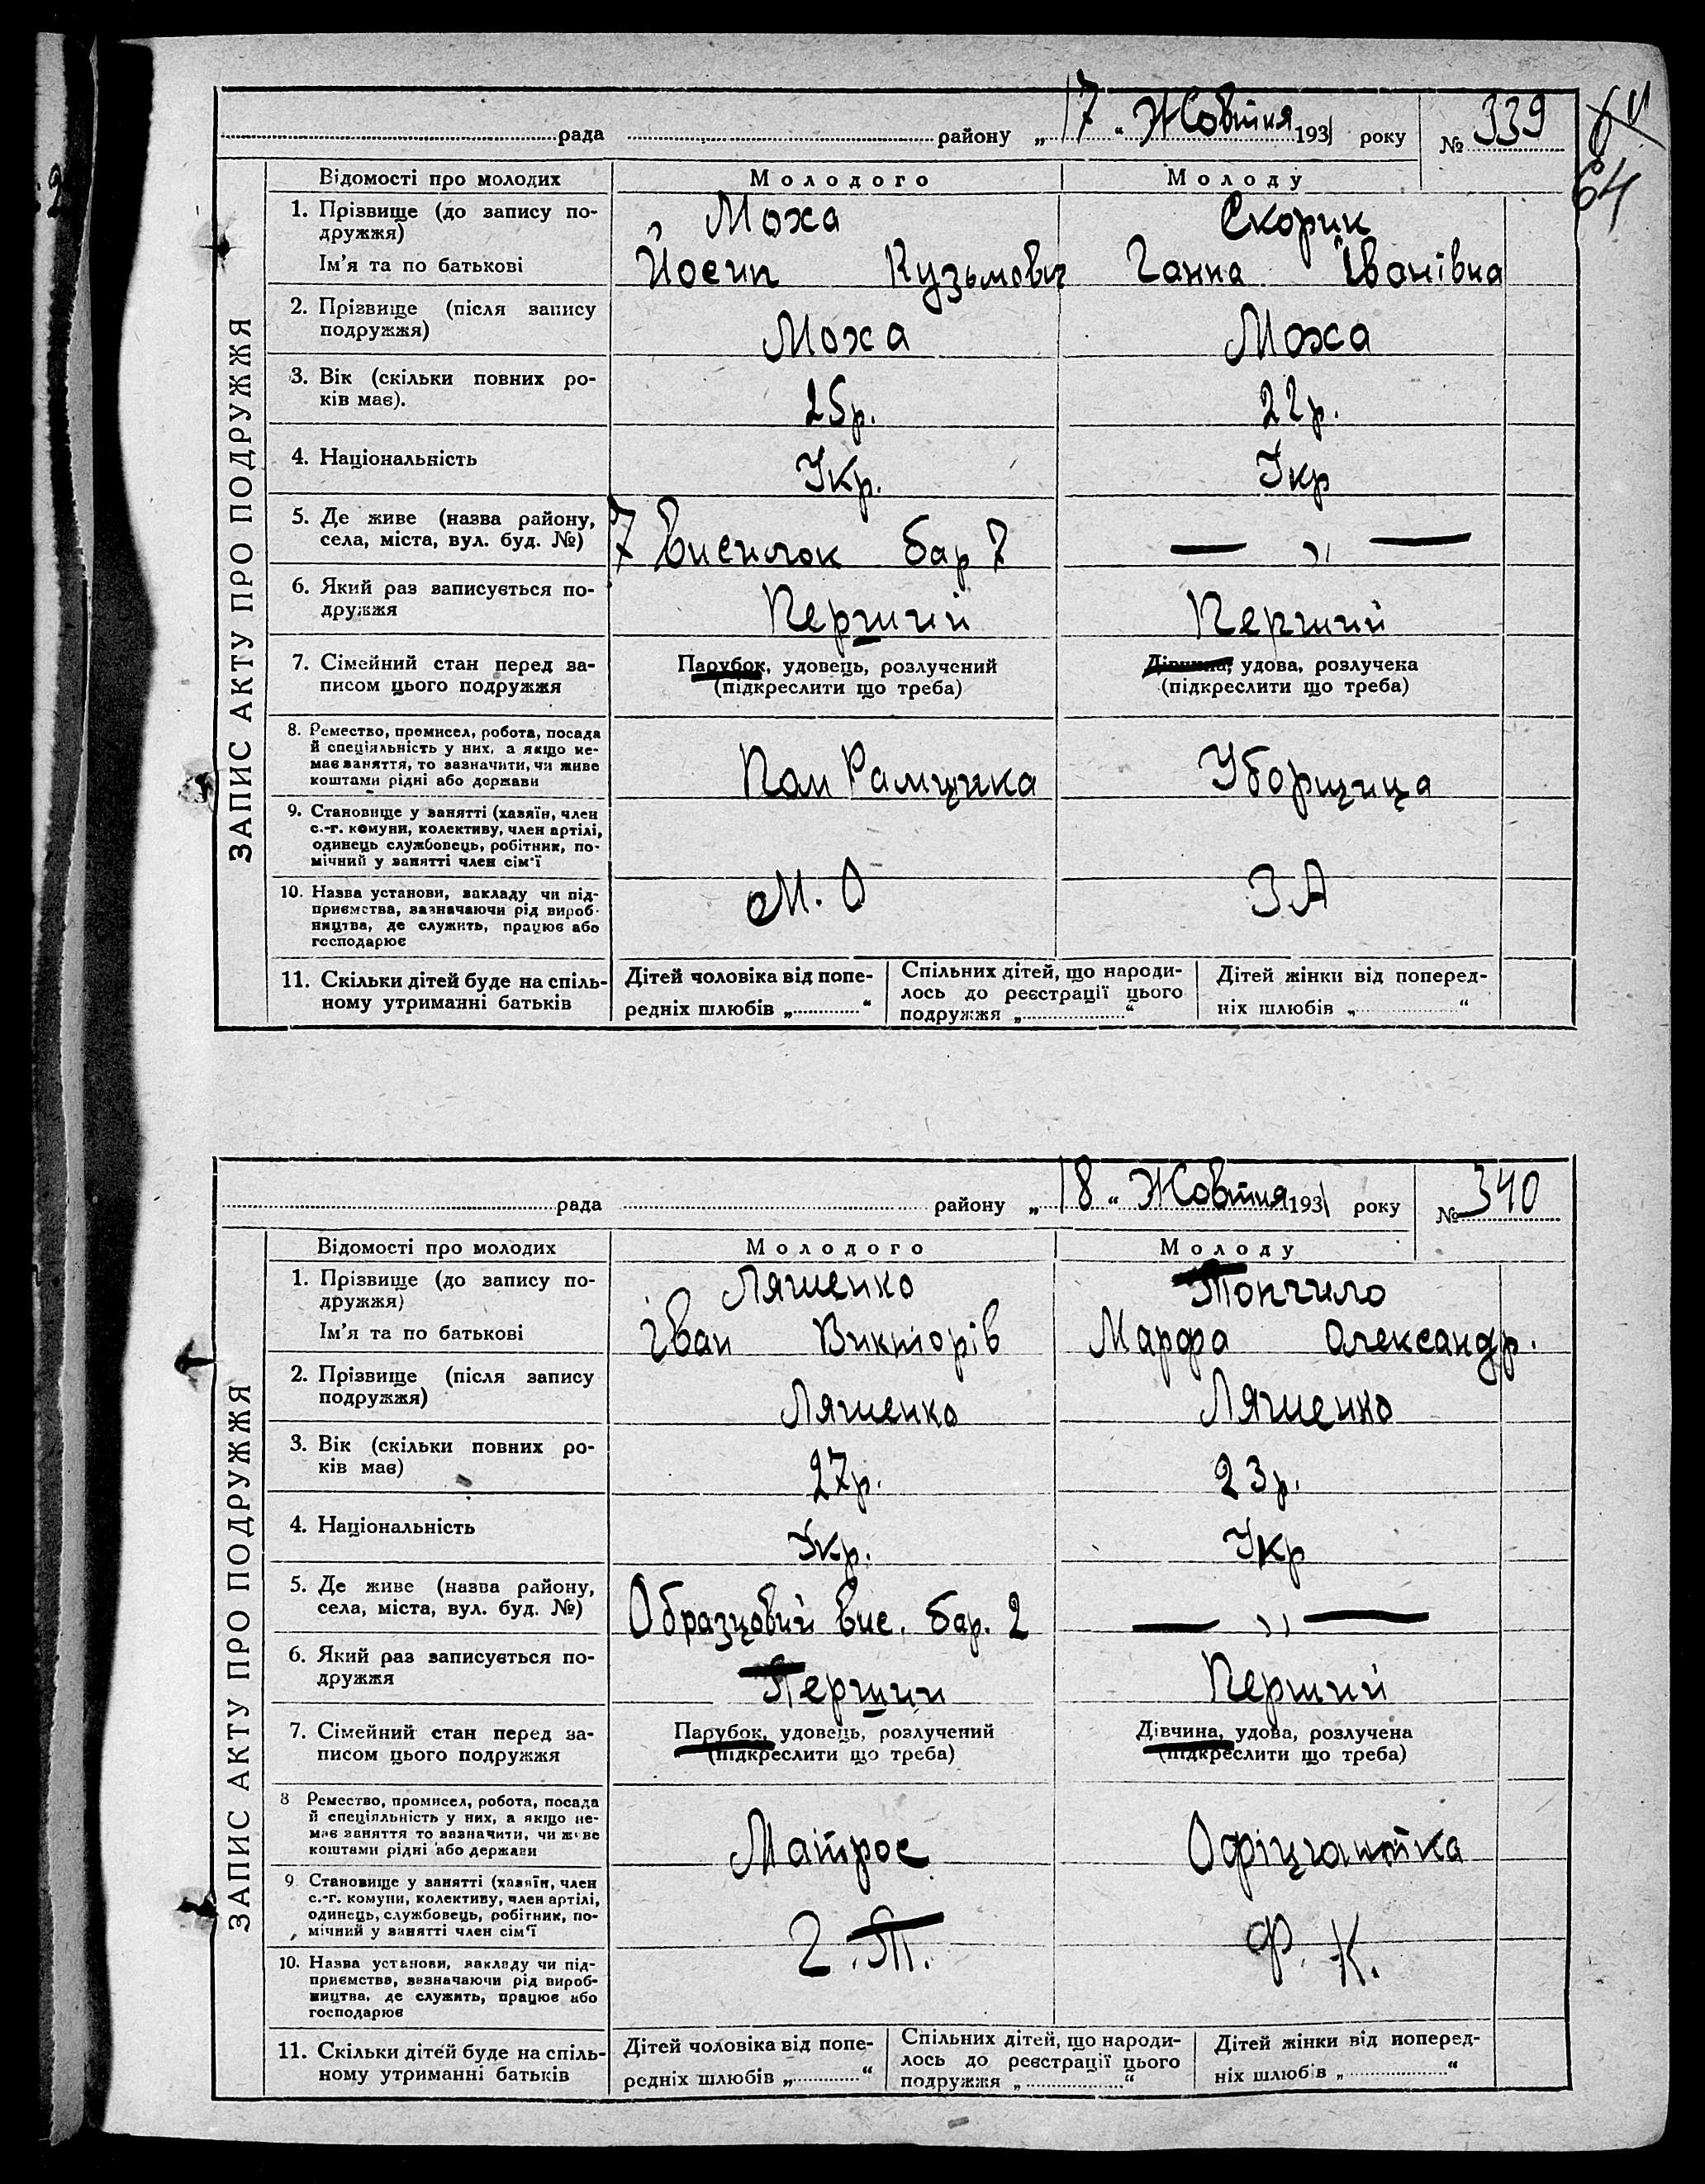 рада району „17“ Жовтня 1931 року № 339
64
Відомості про молодих Молодого Молоду
ЗАПИС АКТУ ПРО ПОДРУЖЖЯ
1. Прізвище (до запису по- Моха Скорик
дружжя)
Ім'я та по батькові Йосип Кузьмович Ганна Іванівна
2. Прізвище (після запису
подружжя) Моха Моха
3. Вік (скільки повних ро-
ків має). 25р. 22р.
4. Національність Укр. Укр
5. Де живе (назва району,
села, міста, вул. буд. №) 7 Висилок бар 7 — „ —
6. Який раз записується по-
дружжя Перший Перший
7. Сімейний стан перед за- Парубок, удовець, розлучений Дівчина, удова, розлучена
писом цього подружжя (підкреслити що треба) (підкреслити що треба)
8. Ремество, промисел, робота, посада
й спеціяльність у них, а якщо не-
має заняття, то зазначити, чи живе
коштами рідні або держави Пом Рамщика Уборщица
9. Становище у занятті (хазяїн, член
с.-г. комуни, колективу, член артілі,
одинець службовець, робітник, по-
мічний у занятті член сім'ї
10. Назва установи, закладу чи під- М. О З А
приємства, зазначаючи рід вироб-
ництва, де служить, працює або
господарює
11. Скільки дітей буде на спіль- Дітей чоловіка від попе- Спільних дітей, що народи- Дітей жінки від поперед-
ному утриманні батьків редніх шлюбів „ “ лось до реєстрації цього ніх шлюбів „ “
подружжя „ “
рада району „18“ Жовтня 1931 року № 340
Відомості про молодих Молодого Молоду
ЗАПИС АКТУ ПРО ПОДРУЖЖЯ
1. Прізвище (до запису по- Ляшенко Топчило
дружжя)
Ім'я та по батькові Іван Викторів Марфа Олександр.
2. Прізвище (після запису
подружжя) Ляшенко Ляшенко
3. Вік (скільки повних ро-
ків має) 27р. 23р.
4. Національність Укр. Укр
5. Де живе (назва району,
села, міста, вул. буд. №) Образцовий вис. бар. 2 — „ —
6. Який раз записується по-
дружжя Перший Перший
7. Сімейний стан перед за- Парубок, удовець, розлучений Дівчина, удова, розлучена
писом цього подружжя (підкреслити що треба) (підкреслити що треба)
8 Ремество, промисел, робота, посада
й спеціяльність у них, а якщо не-
має заняття то зазначити, чи живе
коштами рідні або держави Матрос Офіціантка
9. Становище у занятті (хазяїн, член
с.-г. комуни, колективу, член артілі,
одинець, службовець, робітник, по-
мічний у занятті член сім'ї
10. Назва установи, закладу чи під- 2. Т. Ф. К.
приємства, зазначаючи рід вироб-
ництва, де служить, працює або
господарює
11. Скільки дітей буде на спіль- Дітей чоловіка від попе- Спільних дітей, що народи- Дітей жінки від поперед-
ному утриманні батьків редніх шлюбів „ “ лось до реєстрації цього ніх шлюбів „ “
подружжя „ “